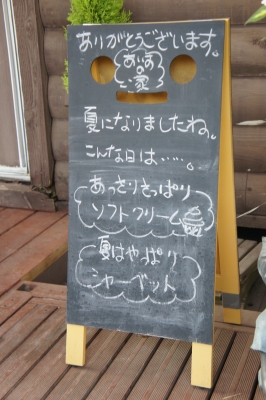 ありがとうございます。
夏になりましたね。
こんな日は・・・・・。
あっさりさっぱり
ソフトクリーム
夏はやっぱり
シャーベット